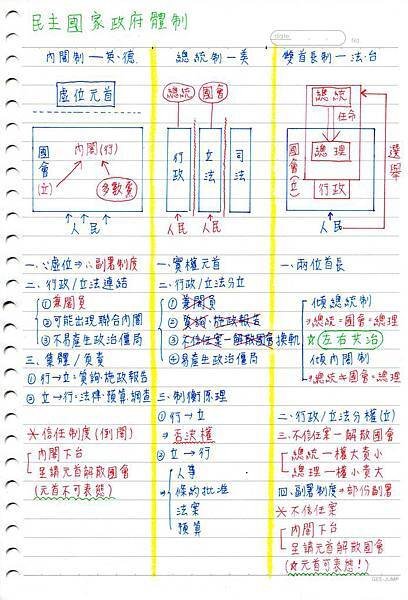 民主國家政府體制
date
No.
內閣制—英、德
虛位元首
國會(立)
內閣(行)
多數黨
人民
一、∵虛位⇒∴副署制度
二、行政/立法連結
①兼閣員
②可能出現聯合內閣
③不易產生政治僵局
三、集體/負責
①行→立:質詢、施政報告
②立→行:法律、預算、調查
*不信任制度(倒閣)
內閣下台
呈請元首解散國會
(元首不可表態)
總統制—美
總統
國會
行政
立法
司法
人民
人民
一、實權元首
二、行政/立法分立
①兼閣員
②質詢、施政報告
③不信任案—解散國會
④易產生政治僵局
三、制衡原理
①行→立
⇒否決權
②立→行
人事
條約批准
法案
預算
雙首長制—法、台
總統
任命
國會(立)
總理
行政
選舉
人民
一、兩位首長
傾總統制
⇒總統=國會=總理
☆左右共治
傾內閣制
⇒總統≠國會=總理
二、行政/立法分權(立)
三、不信任案—解散國會
總統—權大責小
總理—權小責大
四、副署制度⇒部份副署
*不信任案
內閣下台
呈請元首解散國會
(☆元首可表態!)